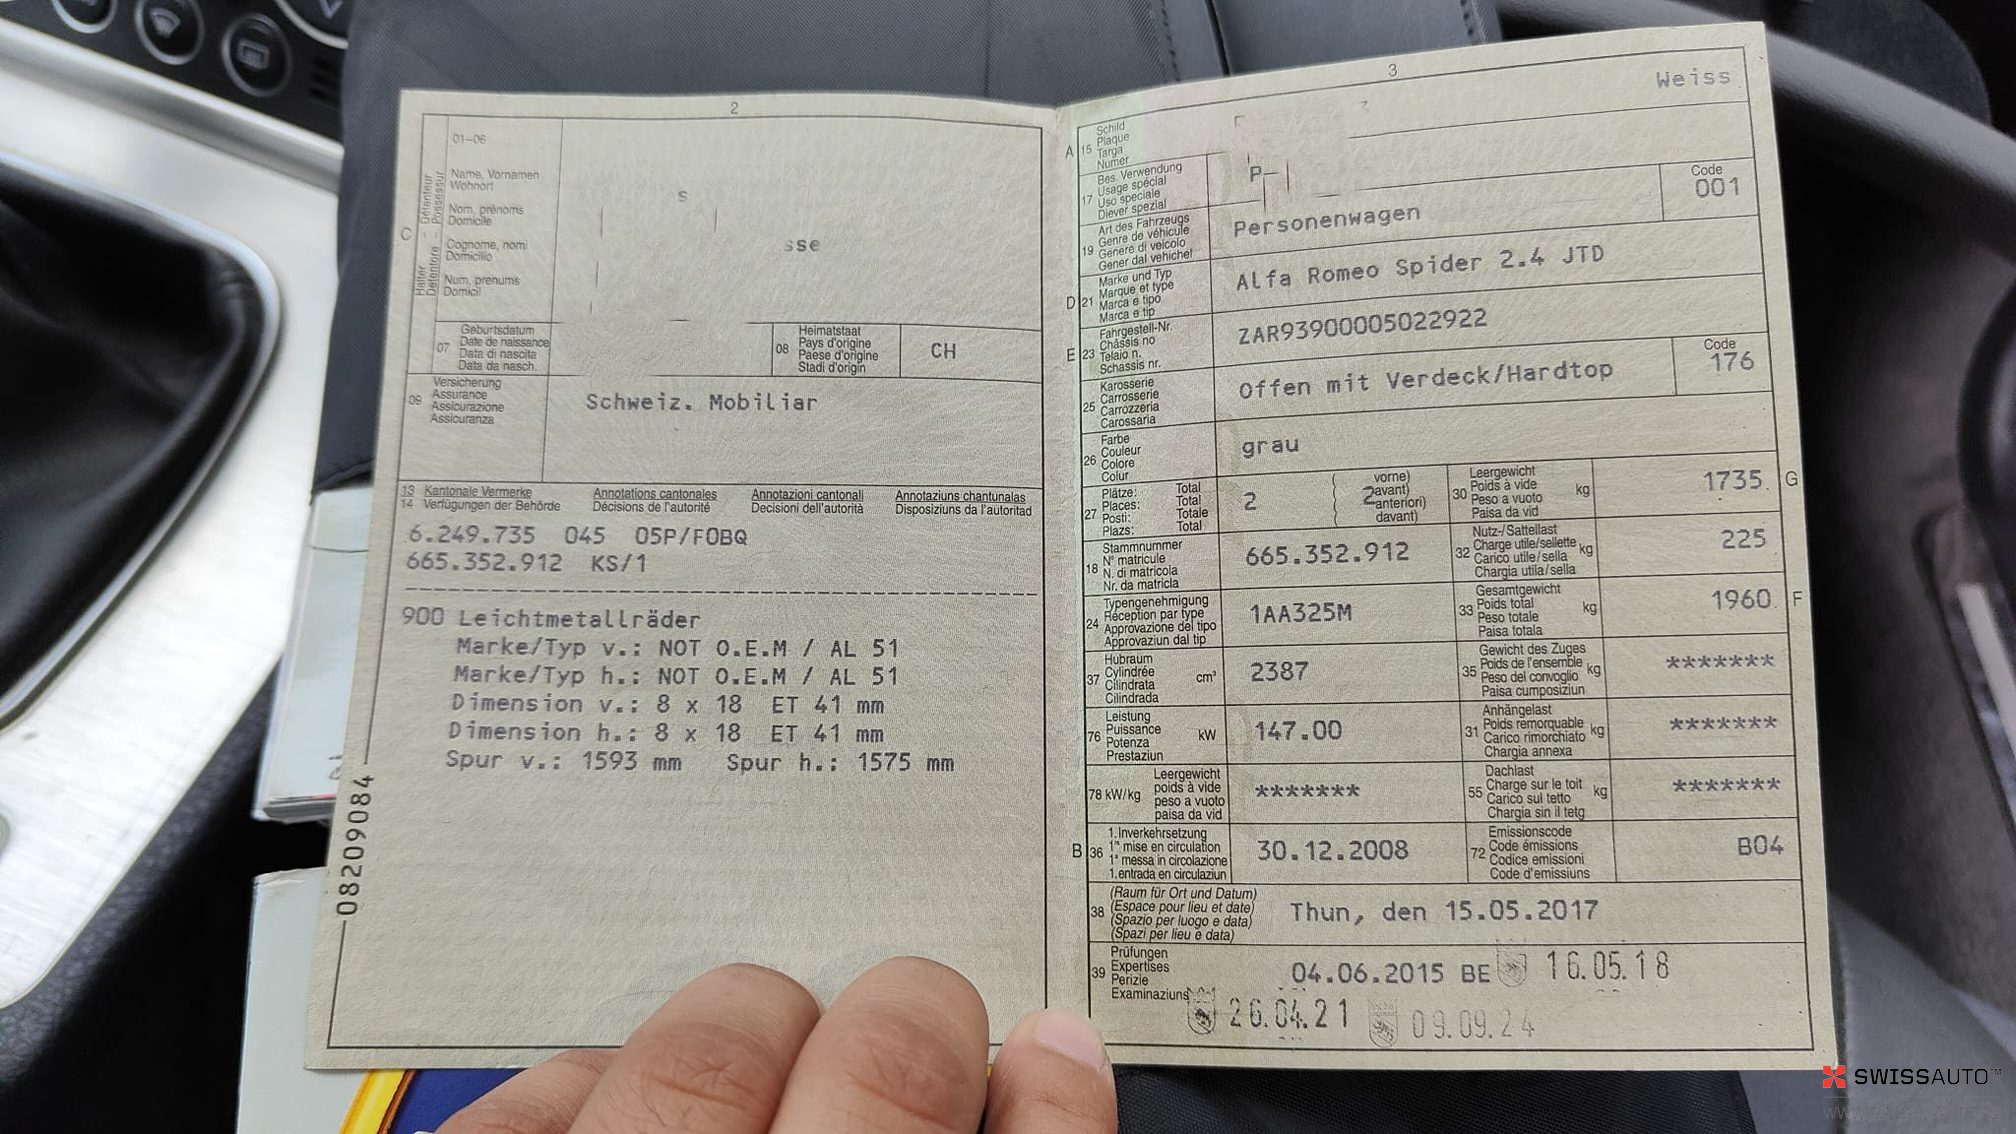 2
01-06
Halter - Détenteur
Detentore - Possessur
C
Name, Vornamen
Wohnort
Nom, prénoms
Domicile
Cognome, nomi
Domicilio
Num, prenums
Domicil
s
sse
07
Geburtsdatum
Date de naissance
Data di nascita
Data da nasch.
08
Heimatstaat
Pays d'origine
Paese d'origine
Stadi d'origin
CH
09
Versicherung
Assurance
Assicurazione
Assicuranza
Schweiz. Mobiliar
13 Kantonale Vermerke Annotations cantonales Annotazioni cantonali Annotaziuns chantunalas
14 Verfügungen der Behörde Décisions de l'autorité Decisioni dell'autorità Disposiziuns da l'autoritad
6.249.735 045 05P/FOBQ
665.352.912 KS/1
900 Leichtmetallräder
Marke/Typ v.: NOT O.E.M / AL 51
Marke/Typ h.: NOT O.E.M / AL 51
Dimension v.: 8 x 18 ET 41 mm
Dimension h.: 8 x 18 ET 41 mm
Spur v.: 1593 mm Spur h.: 1575 mm
08209084
3
Weiss
A 15
Schild
Plaque
Targa
Numer
17
Bes. Verwendung
Usage spécial
Uso speciale
Diever spezial
P-
19
Art des Fahrzeugs
Genre de véhicule
Genere di veicolo
Gener dal vehichel
Personenwagen
Code
001
D 21
Marke und Typ
Marque et type
Marca e tipo
Marca e tip
Alfa Romeo Spider 2.4 JTD
E 23
Fahrgestell-Nr.
Châssis no
Telaio n.
Schassis nr.
ZAR93900005022922
25
Karosserie
Carrosserie
Carrozzeria
Carossaria
Offen mit Verdeck/Hardtop
Code
176
26
Farbe
Couleur
Colore
Colur
grau
27
Plätze: Total
Places: Total
Posti: Totale
Plazs: Total
2
vorne)
2avant)
anteriori)
davant)
30
Leergewicht
Poids à vide
Peso a vuoto
Paisa da vid
kg
1735
G
18
Stammnummer
N° matricule
N. di matricola
Nr. da matricla
665.352.912
32
Nutz-/Sattellast
Charge utile/sellette
Carico utile/sella
Chargia utila/sella
kg
225
24
Typengenehmigung
Réception par type
Approvazione del tipo
Approvaziun dal tip
1AA325M
33
Gesamtgewicht
Poids total
Peso totale
Paisa totala
kg
1960
F
37
Hubraum
Cylindrée
Cilindrata
Cilindrada
cm³
2387
35
Gewicht des Zuges
Poids de l'ensemble
Peso del convoglio
Paisa cumposiziun
kg
*******
76
Leistung
Puissance
Potenza
Prestaziun
kW
147.00
31
Anhängelast
Poids remorquable
Carico rimorchiato
Chargia annexa
kg
*******
78 kW/kg
Leergewicht
poids à vide
peso a vuoto
paisa da vid
*******
55
Dachlast
Charge sur le toit
Carico sul tetto
Chargia sin il tetg
kg
*******
B 36
1. Inverkehrsetzung
1re mise en circulation
1a messa in circolazione
1. entrada en circulaziun
30.12.2008
72
Emissionscode
Code émissions
Codice emissioni
Code d'emissiuns
B04
38
(Raum für Ort und Datum)
(Espace pour lieu et date)
(Spazio per luogo e data)
(Spazi per lieu e data)
Thun, den 15.05.2017
39
Prüfungen
Expertises
Perizie
Examinaziuns
04.06.2015 BE 16.05.18
26.04.21 09.09.24
SWISSAUTO™